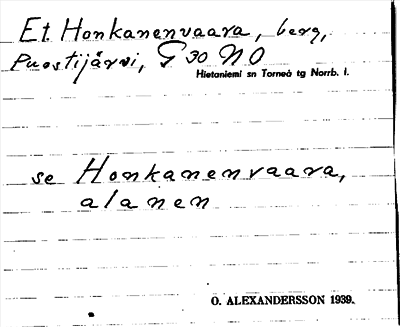 Et Honkanenvaara, berg,
Puostijärvi, G 30 NO
Hietaniemi sn Torneå tg Norrb. l.
se Honkanenvaara,
alanen
O. ALEXANDERSSON 1939.